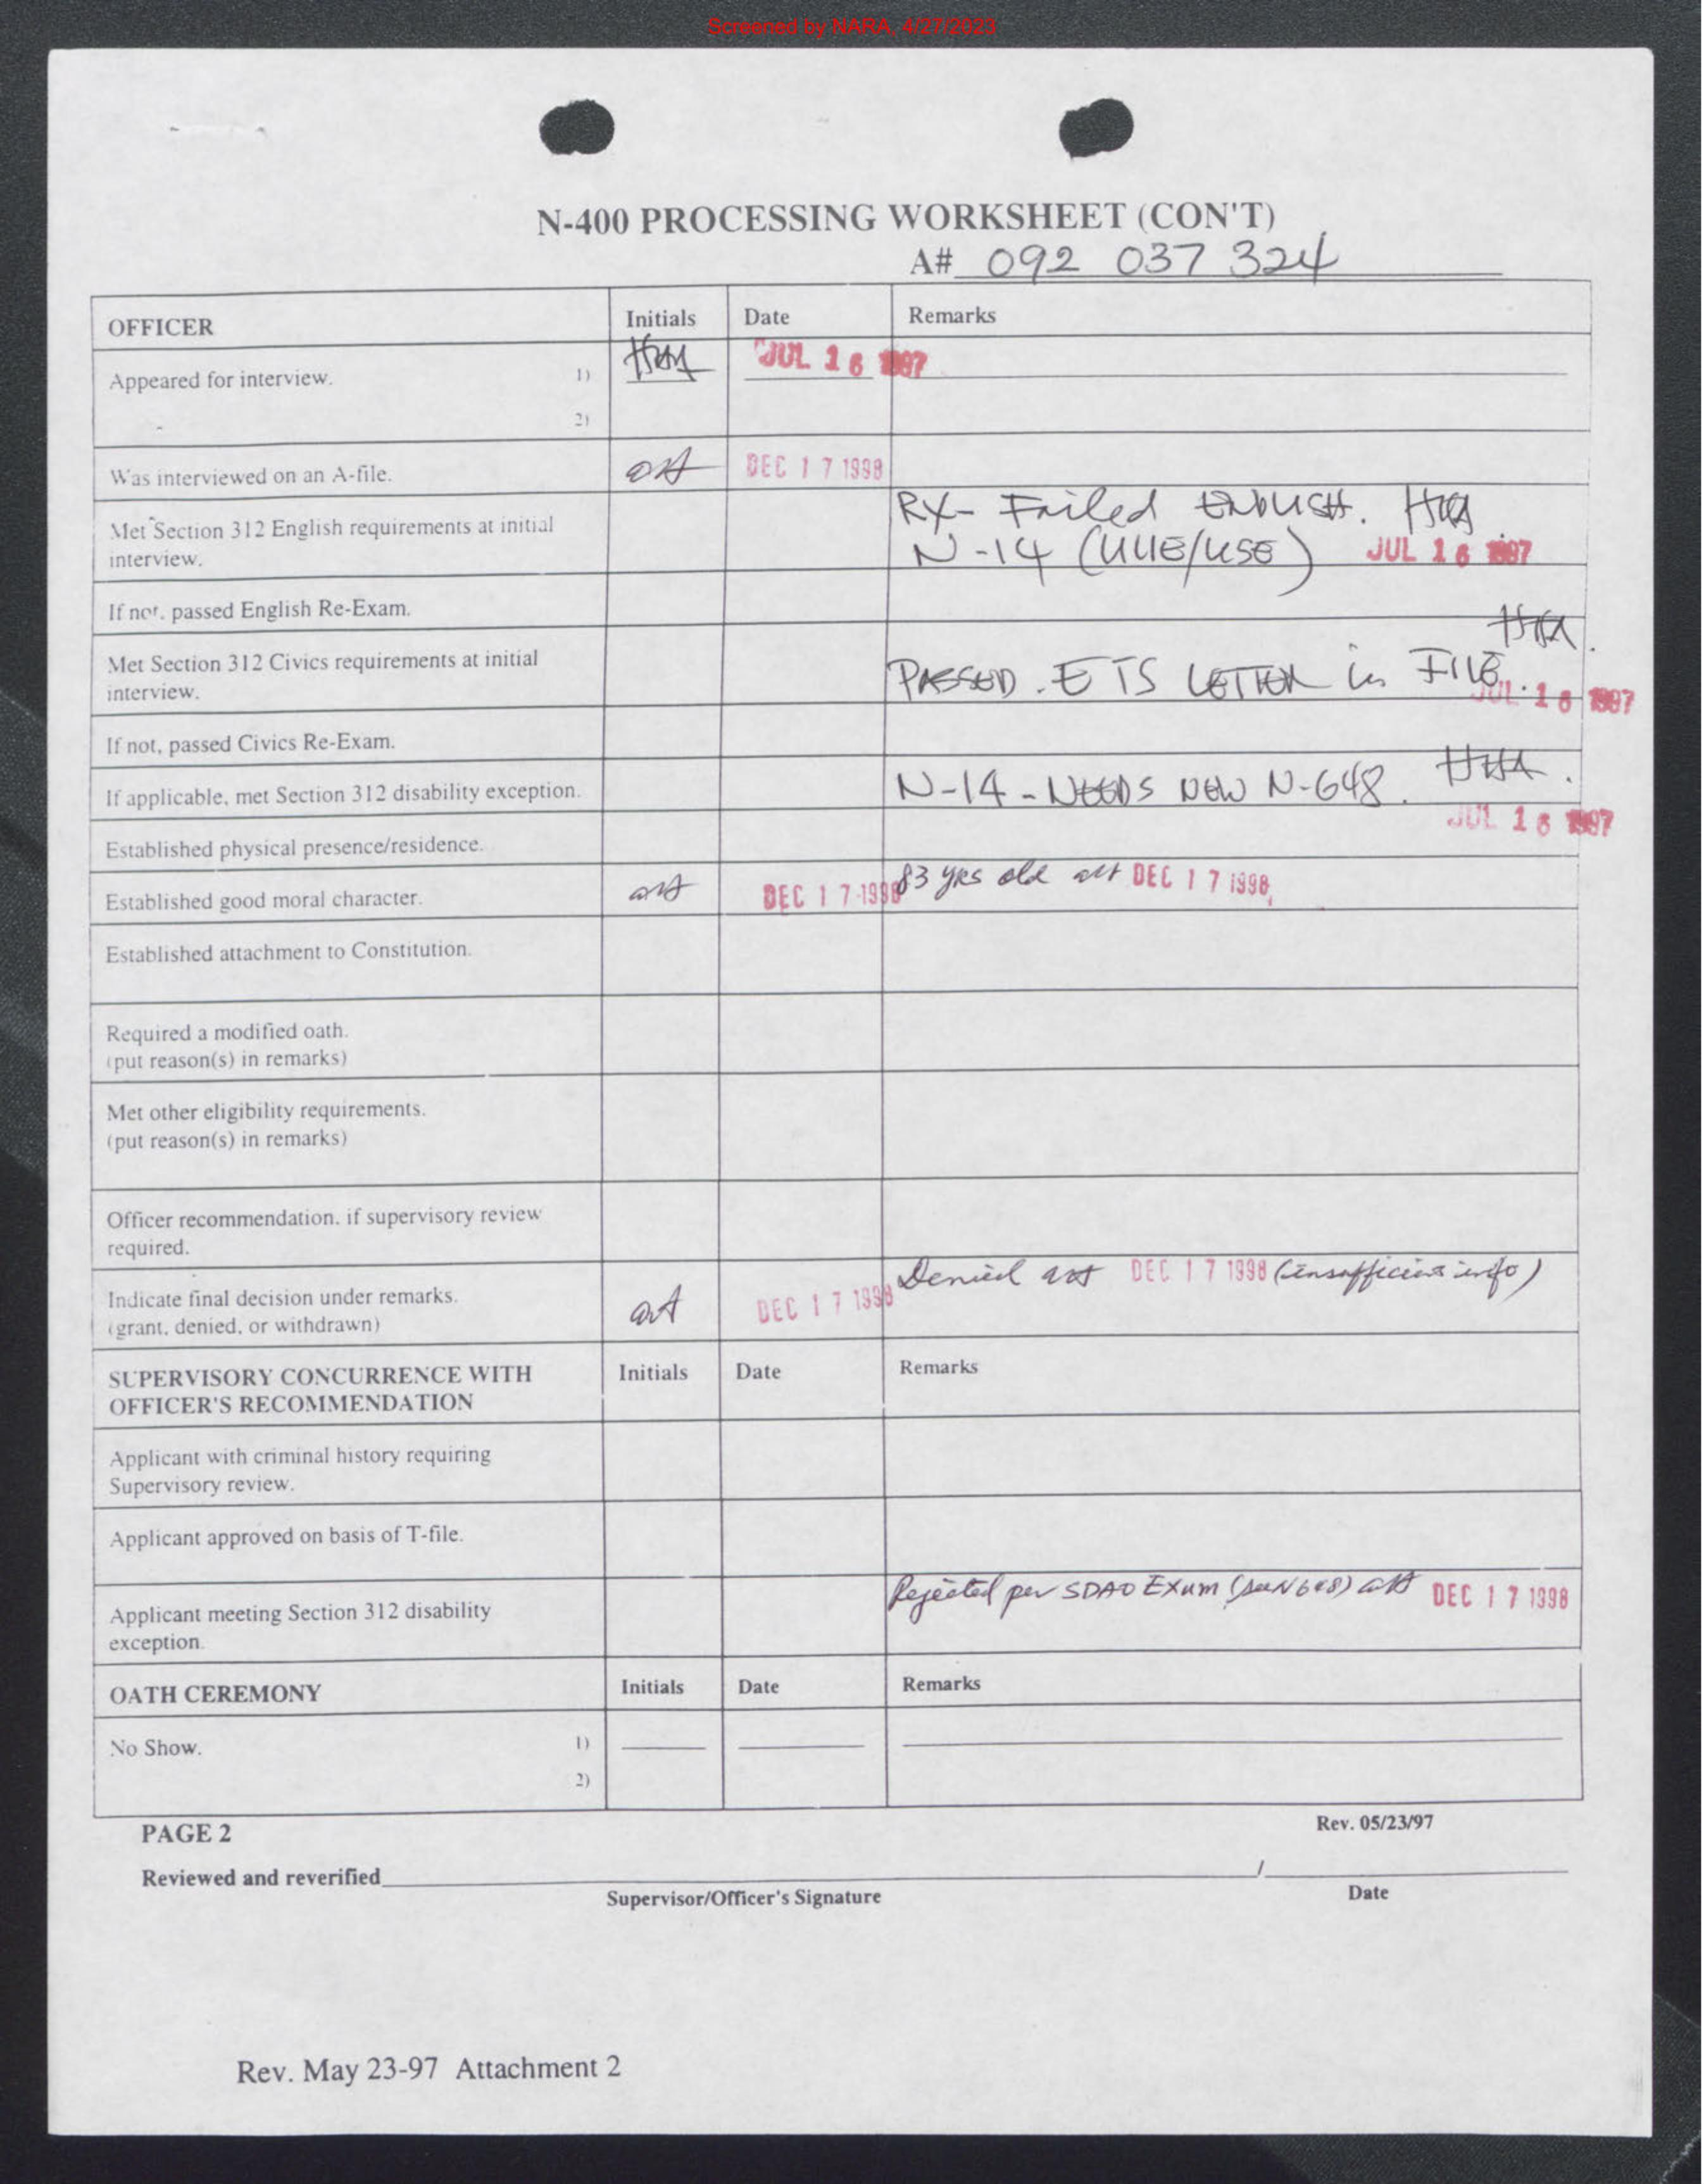 Screened by NARA, 4/27/2023
N-400 PROCESSING WORKSHEET (CON'T)
A# 092 037 324
OFFICER Initials Date Remarks
Appeared for interview. 1) JUL 16 1997
2)
Was interviewed on an A-file. DEC 17 1998
Met Section 312 English requirements at initial interview. RX- Failed ENGLISH.
N-14 (UUE/USE) JUL 16 1997
If not, passed English Re-Exam.
Met Section 312 Civics requirements at initial
interview. PASSED. ETS LETTER in FILE. JUL 16 1997
If not, passed Civics Re-Exam.
If applicable, met Section 312 disability exception. N-14 - NEEDS NEW N-648. JUL 16 1997
Established physical presence/residence.
Established good moral character. DEC 17 1998 83 yrs old DEC 17 1998
Established attachment to Constitution.
Required a modified oath.
(put reason(s) in remarks)
Met other eligibility requirements.
(put reason(s) in remarks)
Officer recommendation, if supervisory review
required.
Indicate final decision under remarks. DEC 17 1998 Denied DEC 17 1998 (insufficient info)
(grant, denied, or withdrawn)
SUPERVISORY CONCURRENCE WITH Initials Date Remarks
OFFICER'S RECOMMENDATION
Applicant with criminal history requiring
Supervisory review.
Applicant approved on basis of T-file.
Applicant meeting Section 312 disability Rejected per SDAO Exam (see N648) DEC 17 1998
exception.
OATH CEREMONY Initials Date Remarks
No Show. 1)
2)
PAGE 2 Rev. 05/23/97
Reviewed and reverified /
Supervisor/Officer's Signature Date
Rev. May 23-97 Attachment 2